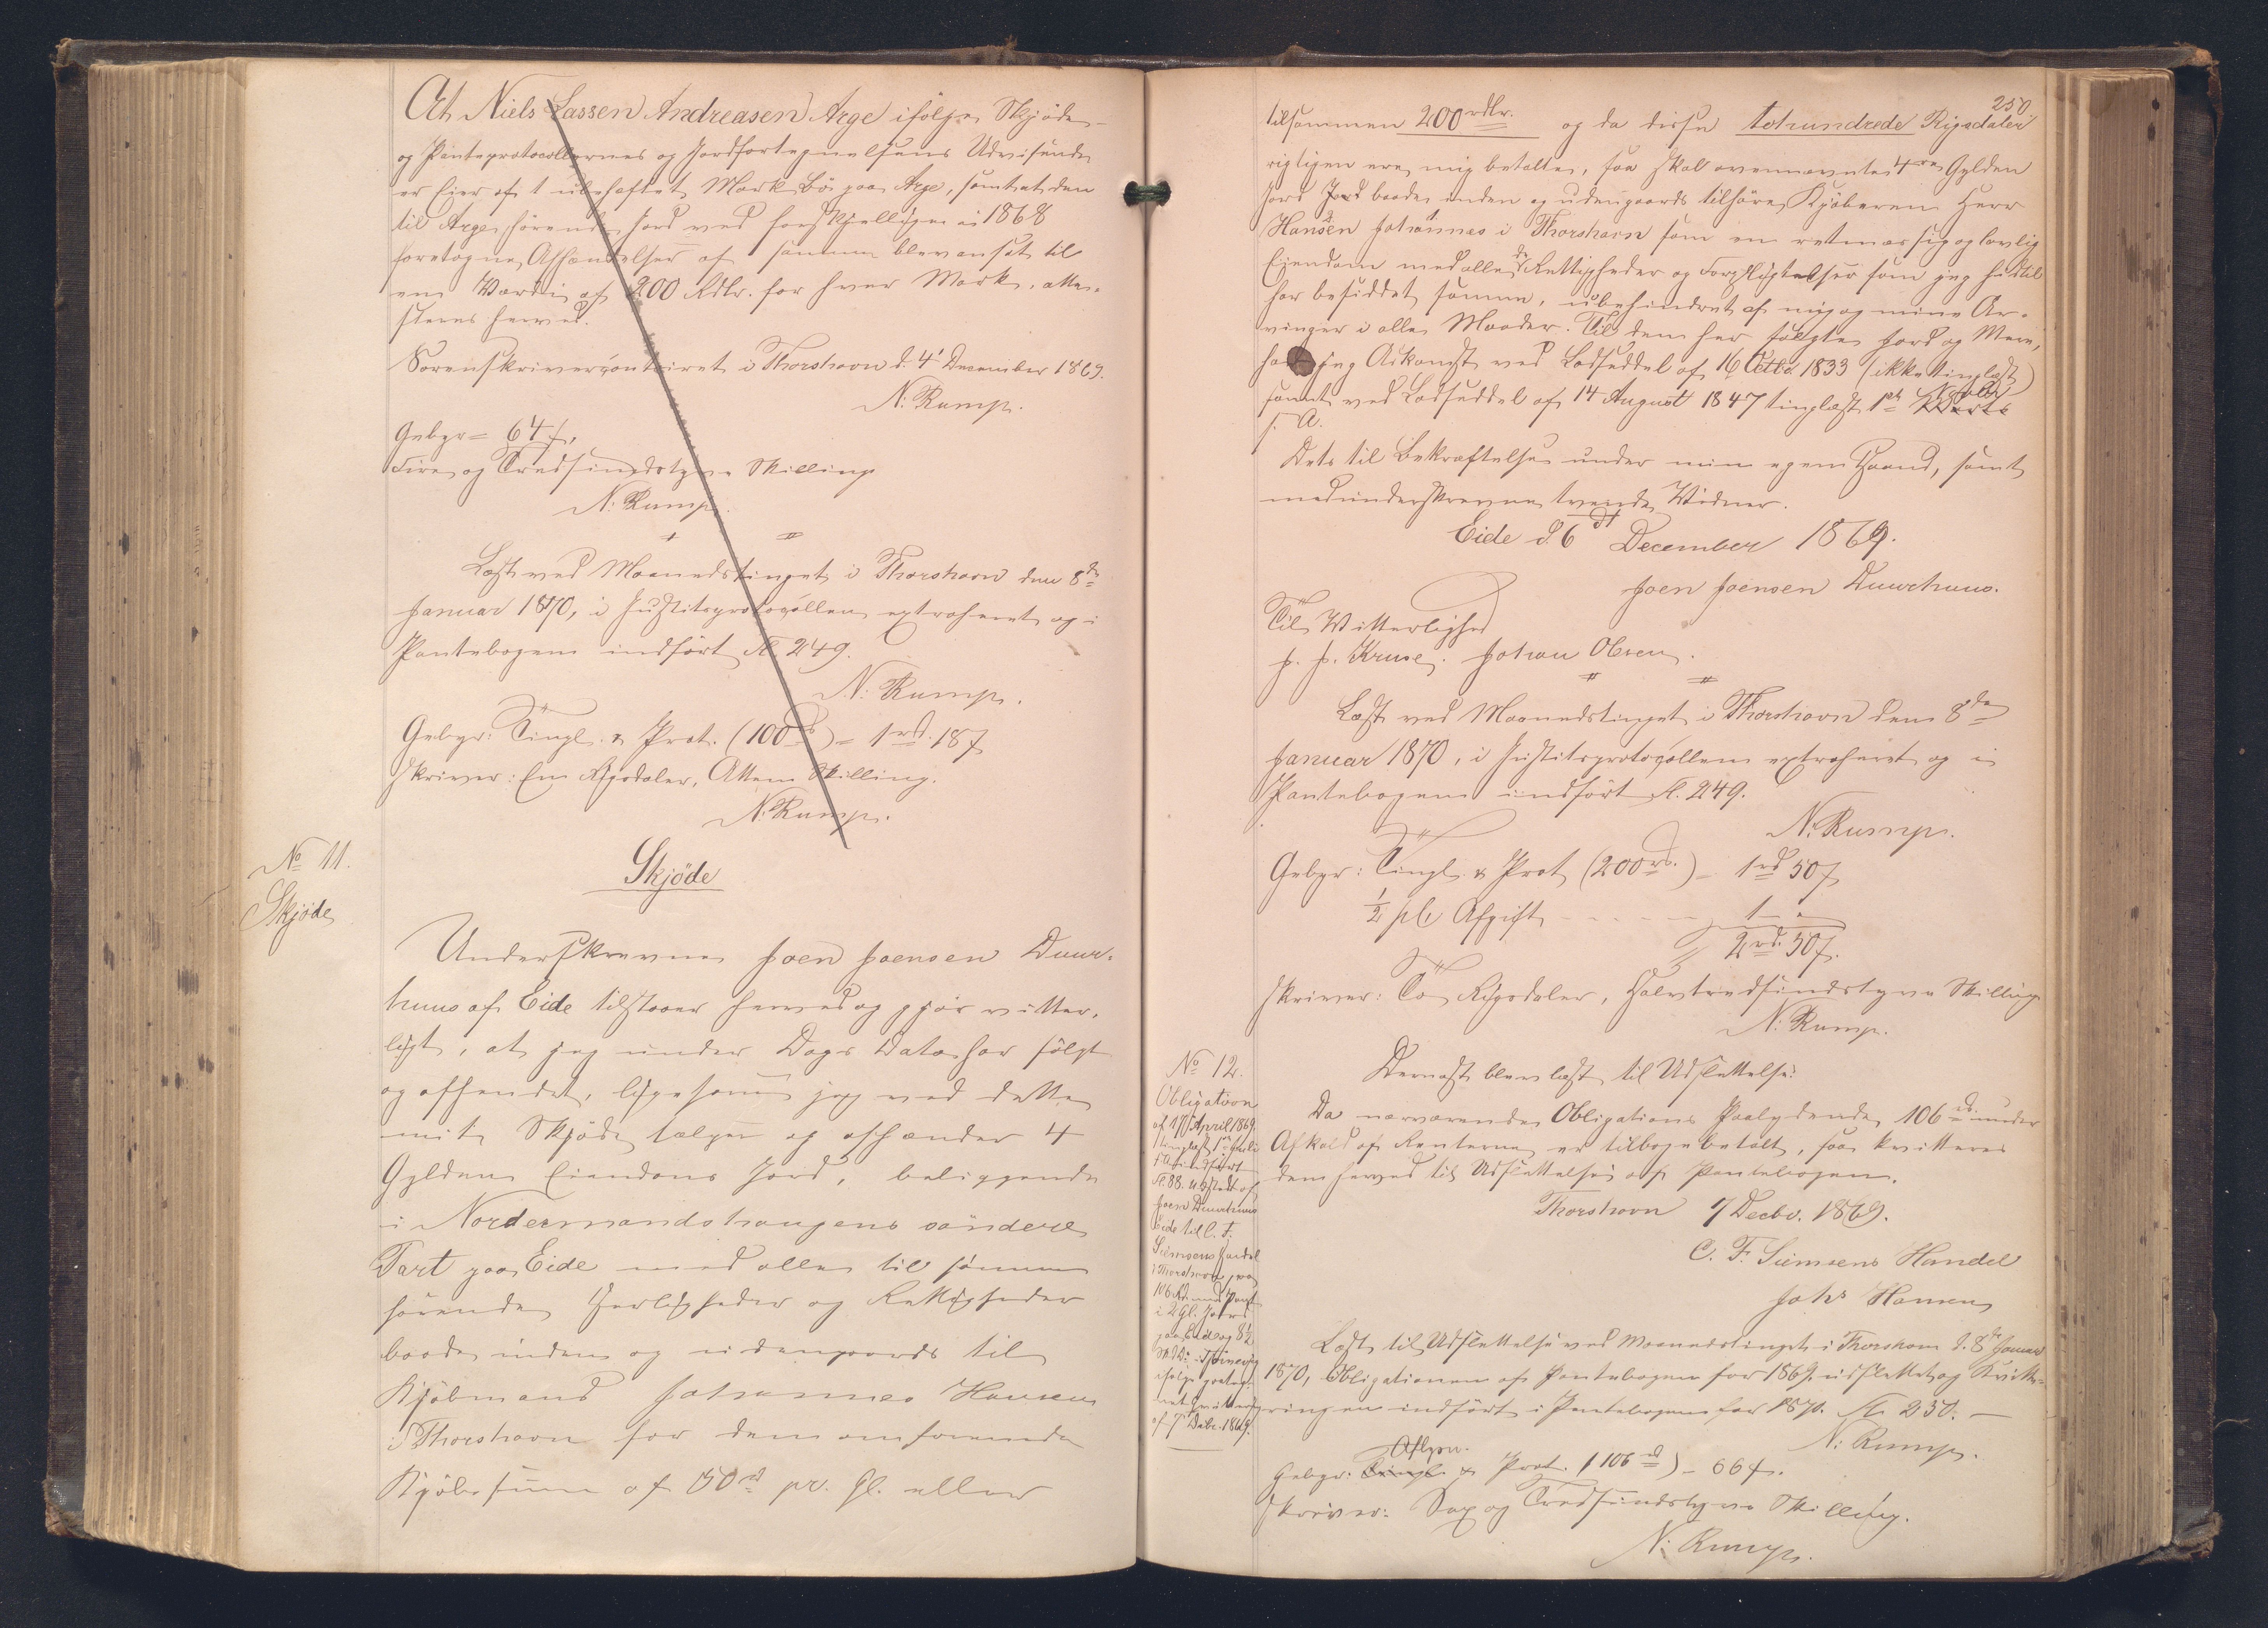 At Niels Lassen Andreasen Arge ifølge Skjøde-
og Panteprotocollernes og Jordfortegnelsens Udvisende
er Eier af 1 ubehæftet Mark Bø paa Arge, samt at den
til Arge hørende Jord ved forskjellige i 1868
foretagne Afhændelser af samme blev ansat til
en Værdi af 200 Rdlr. for hver Mark, atte-
steres herved.
Sorenskrivercontoiret i Thorshavn d. 4' December 1869.
N. Rump.
Gebyr = 64 ß,
Fire og Tredsindstyve Skilling
N. Rump.
Læst ved Maanedstinget i Thorshavn den 8de
Januar 1870, i Justitsprotocollen extraheret og i
Pantebogen indført Fl. 249.
N. Rump.
Gebyr: Tingl. & Prot. (100 rd) = 1 rd. 18 ß
skriver: En Rigsdaler, Atten Skilling.
N. Rump.
No 11.
Skjøde
Skjøde
Underskrevne Joen Joensen Duur-
huus af Eide tilstaaer herved og gjør vitter-
ligt, at jeg under Dags Dato har solgt
og afhendet, ligesom jeg ved dette
mit Skjøde sælger og afhænder 4
Gylden Eiendoms Jord, beliggende
i Nordermandshaugens søndere
Part paa Eide med alle til samme
hørende Herligheder og Rettigheder
baade inden og udengaards til
Kjøbmand Johannes Hansen
i Thorshavn for den omforenede
Kjøbesum af 50 rd pr. Gl. eller
250.
tilsammen 200 rdlr. og da disse tohundrede Rigsdaler
rigtigen ere mig betalte, saa skal ovennævnte 4re Gylden
Jord baade inden og udengaards tilhøre Kjøberen Herr
Hansen Johannes i Thorshavn som en retmæssig og lovlig
Eiendom med alle de Rettigheder og Forpligtelser som jeg hidtil
har besiddet samme, ubehindret af mig og mine Ar-
vinger i alle Maader. Til den her solgte Jord og Mere,
har jeg Adkomst ved Lodseddel af 16 Octbr 1833 (ikke tinglæst)
samt ved Lodseddel af 14 August 1847 tinglæst 1ste Novbr
s. A.
Dets til Bekræftelse under min egen Haand, samt
medunderskrevne tvende Vidner.
Eide d. 6te December 1869.
Joen Joensen Duurhuus.
Til Vitterlighed
J. J. Kruse. Johan Olsen.
Læst ved Maanedstinget i Thorshavn den 8de
Januar 1870, i Justitsprotocollen extraheret og i
Pantebogen indført Fl. 249.
N. Rump.
Gebyr: Tingl. & Prot (200 rd.) - 1 rd 50 ß
½ pCt Afgift - - - - - 1 - "
2 rd. 50 ß.
skriver: To Rigsdaler, Halvtredsindstyve Skilling
N. Rump.
Dernæst blev læst til Udslettelse:
No 12.
Obligation
af 17 April 1869
tinglæst 1ste Juli
s. A. indført
Fl. 88. udstedt af
Joen Duurhuus
Eide til C. F.
Siemsens Handel
i Thorshavn paa
106 Rd. med Pant
i 2 Gl. Jord
paa Eide og 8½
ifølge paateg-
net Qvittering
af 7 Decbr. 1869.
Da nærværende Obligations Paalydende 106 rd. under
Afkald af Renterne er tilbagebetalt, saa kvitteres
den herved til Udslettelse af Pantebogen.
Thorshavn 7 Decbr. 1869.
C. F. Siemsens Handel
Johs Hansen
Læst til Udslettelse ved Maanedstinget i Thorshavn d. 8de Januar
1870, Obligationen af Pantebogen for 1869 udslettet og Kvitte-
ringen indført i Pantebogen for 1870. Fl. 250. —
N. Rump.
Aflysn.
Gebyr: Tingl. & Prot. (106 rd) - 66 ß.
skriver: Sex og Tredsindstyve Skilling.
N. Rump.